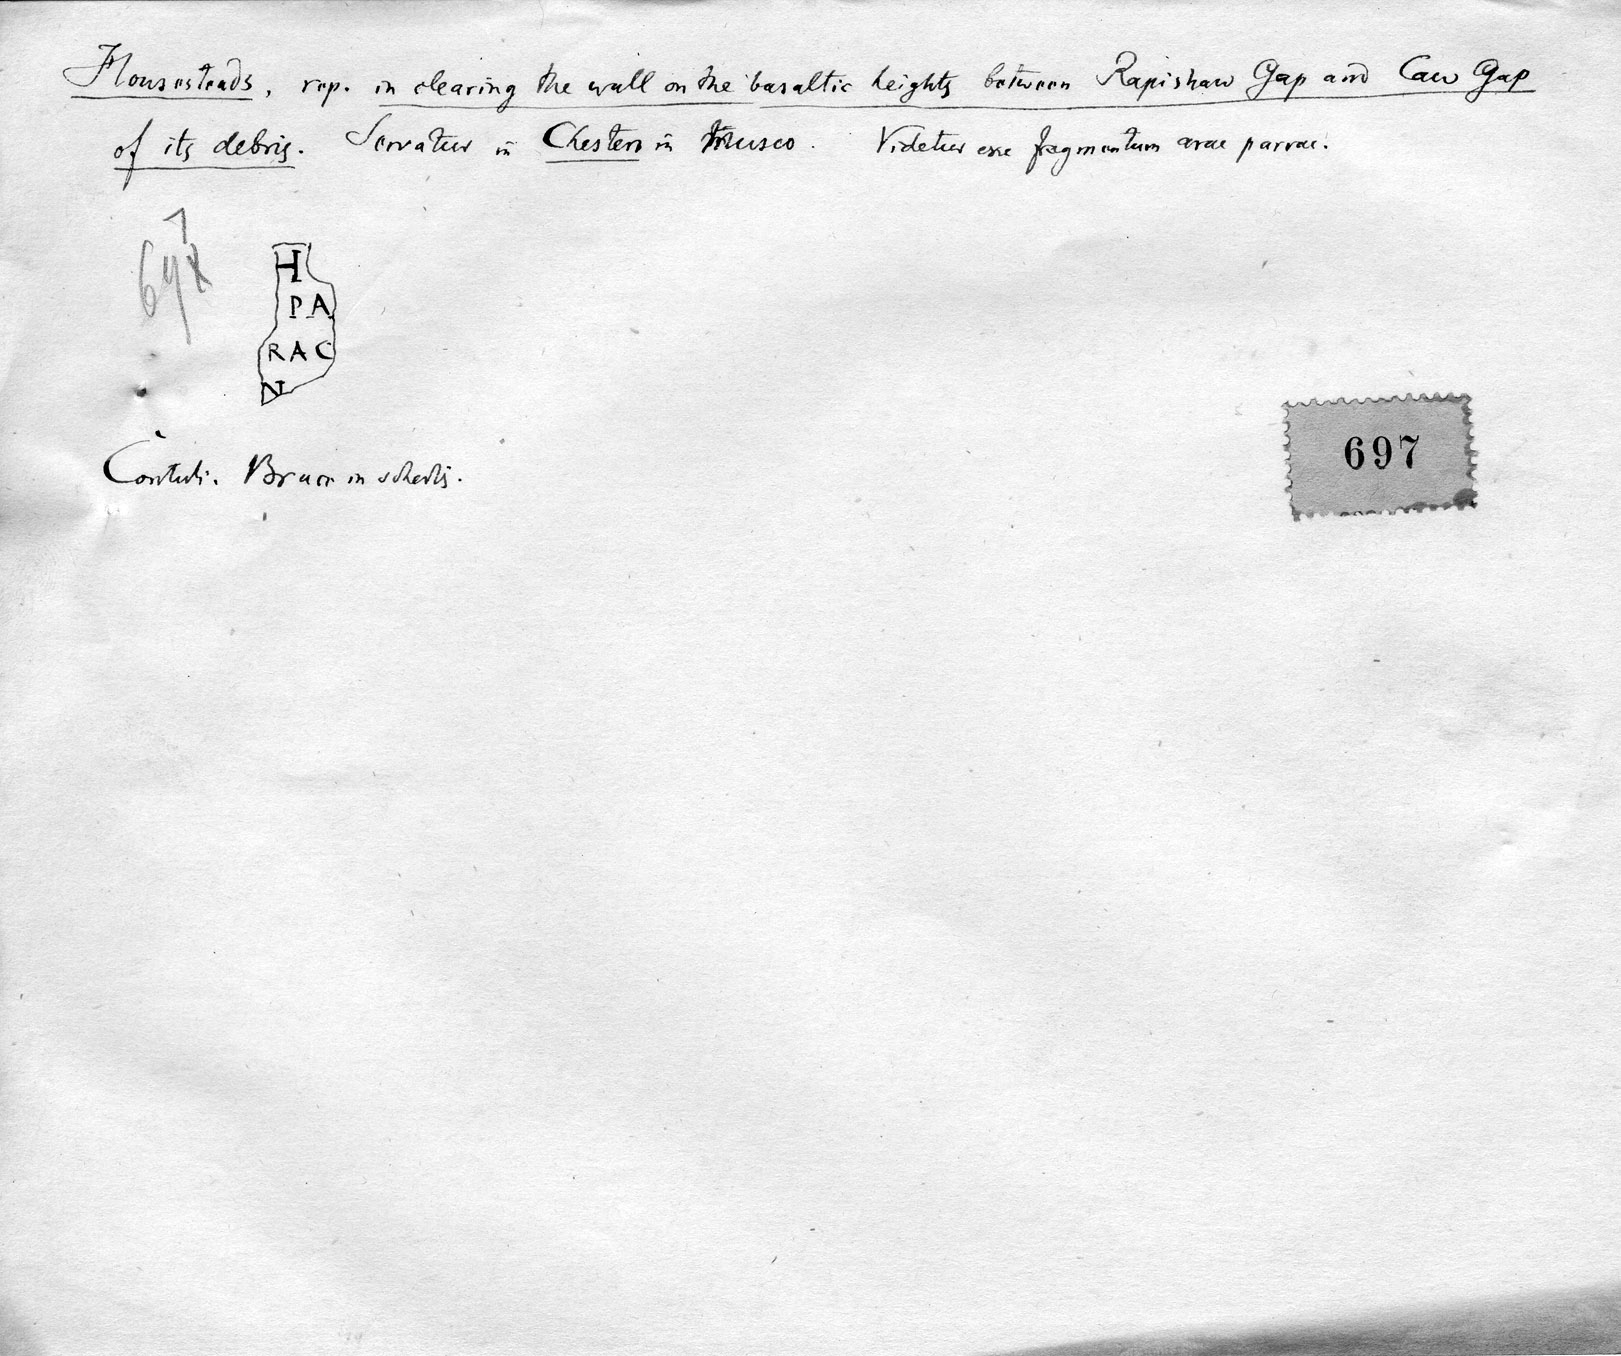 Housesteads, rep. in clearing the wall on the basaltic heights between Rapishaw Gap and Caw Gap
of its debris. Servatur in Chesters in museo. Videtur esse fragmentum arae parvae.
697
H
PA
RAC
N
697
Contuli. Bruce in schedis.